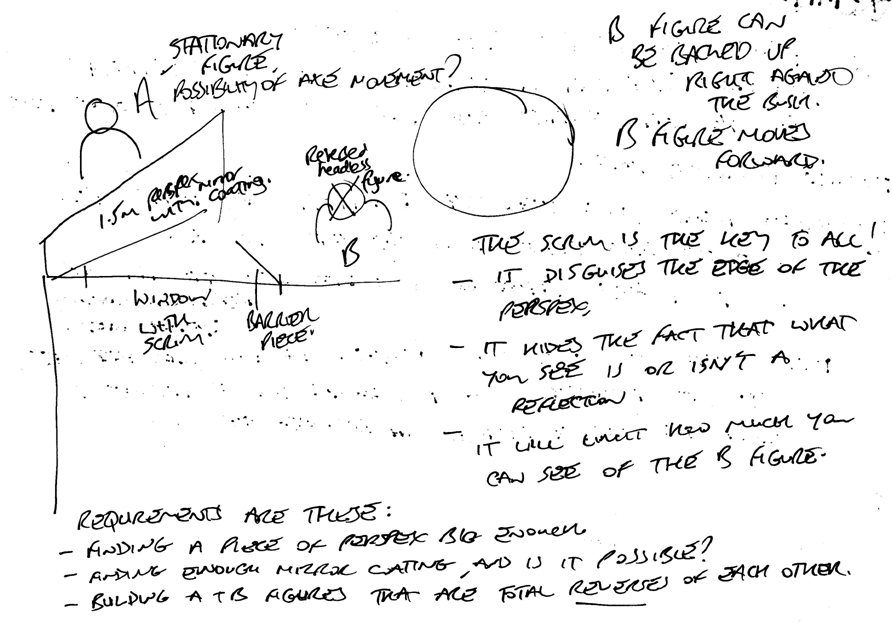 A STATIONARY
FIGURE,
POSSIBILITY OF AXE MOVEMENT?
1.5M PERSPEX MIRROR
WITH COATING.
WINDOW
WITH
SCRIM.
BARRIER
PIECE.
headless
figure.
B
B FIGURE CAN
BE BACKED UP
RIGHT AGAINST
THE BUSH.
B FIGURE MOVES
FORWARD.
THE SCRIM IS THE KEY TO ALL!
- IT DISGUISES THE EDGE OF THE
PERSPEX,
- IT HIDES THE FACT THAT WHAT
YOU SEE IS OR ISN'T A
REFLECTION.
- IT WILL LIMIT HOW MUCH YOU
CAN SEE OF THE B FIGURE.
REQUIREMENTS ARE THESE:
- FINDING A PIECE OF PERSPEX BIG ENOUGH
- FINDING ENOUGH MIRROR COATING, AND IS IT POSSIBLE?
- BUILDING A + B FIGURES THAT ARE TOTAL REVERSES OF EACH OTHER.